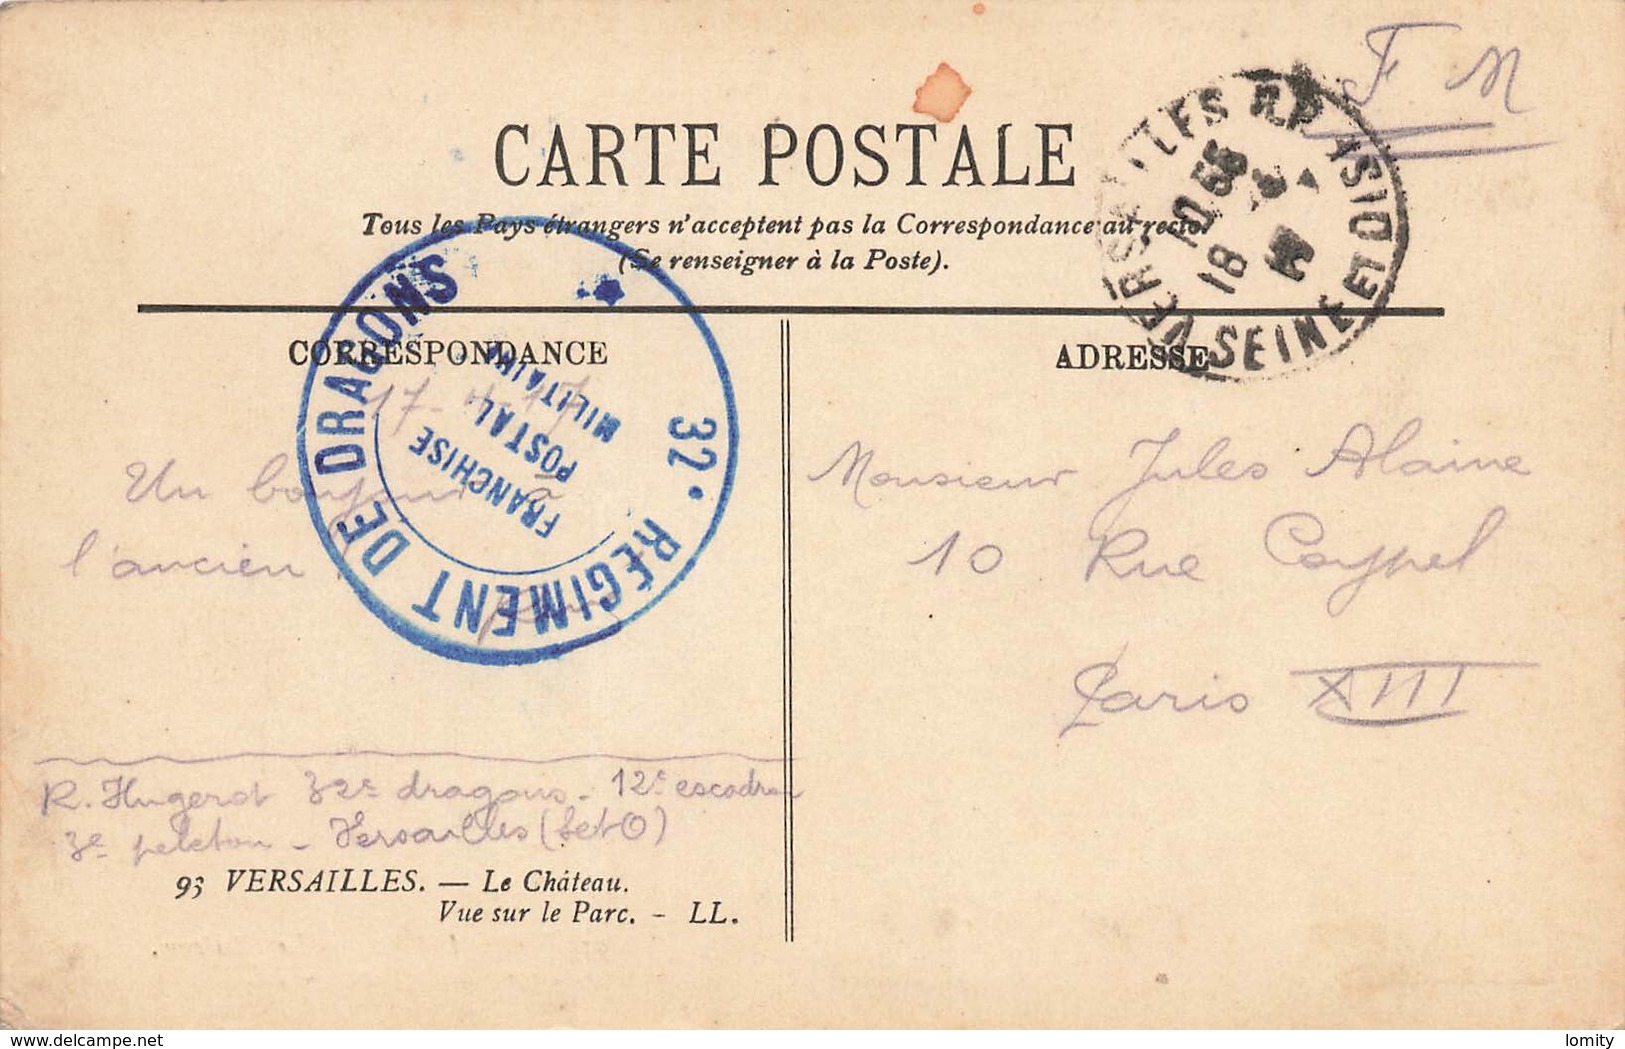 F M
CARTE POSTALE
Tous les Pays étrangers n'acceptent pas la Correspondance au recto.
(Se renseigner à la Poste).
VERSAILLES R.P
SEINE ET OISE
18
32e RÉGIMENT DE DRAGONS
FRANCHISE
POSTALE
MILITAIRE
CORRESPONDANCE
ADRESSE
17-
Un bonjour
l'ancien
Monsieur Jules Alaine
10 Rue Coypel
Paris XIII
R. Hugerot 32e dragons - 12e escadron
3e peleton - Versailles (S et O)
93 VERSAILLES. — Le Château.
Vue sur le Parc. - LL.
delcampe.net
lomity